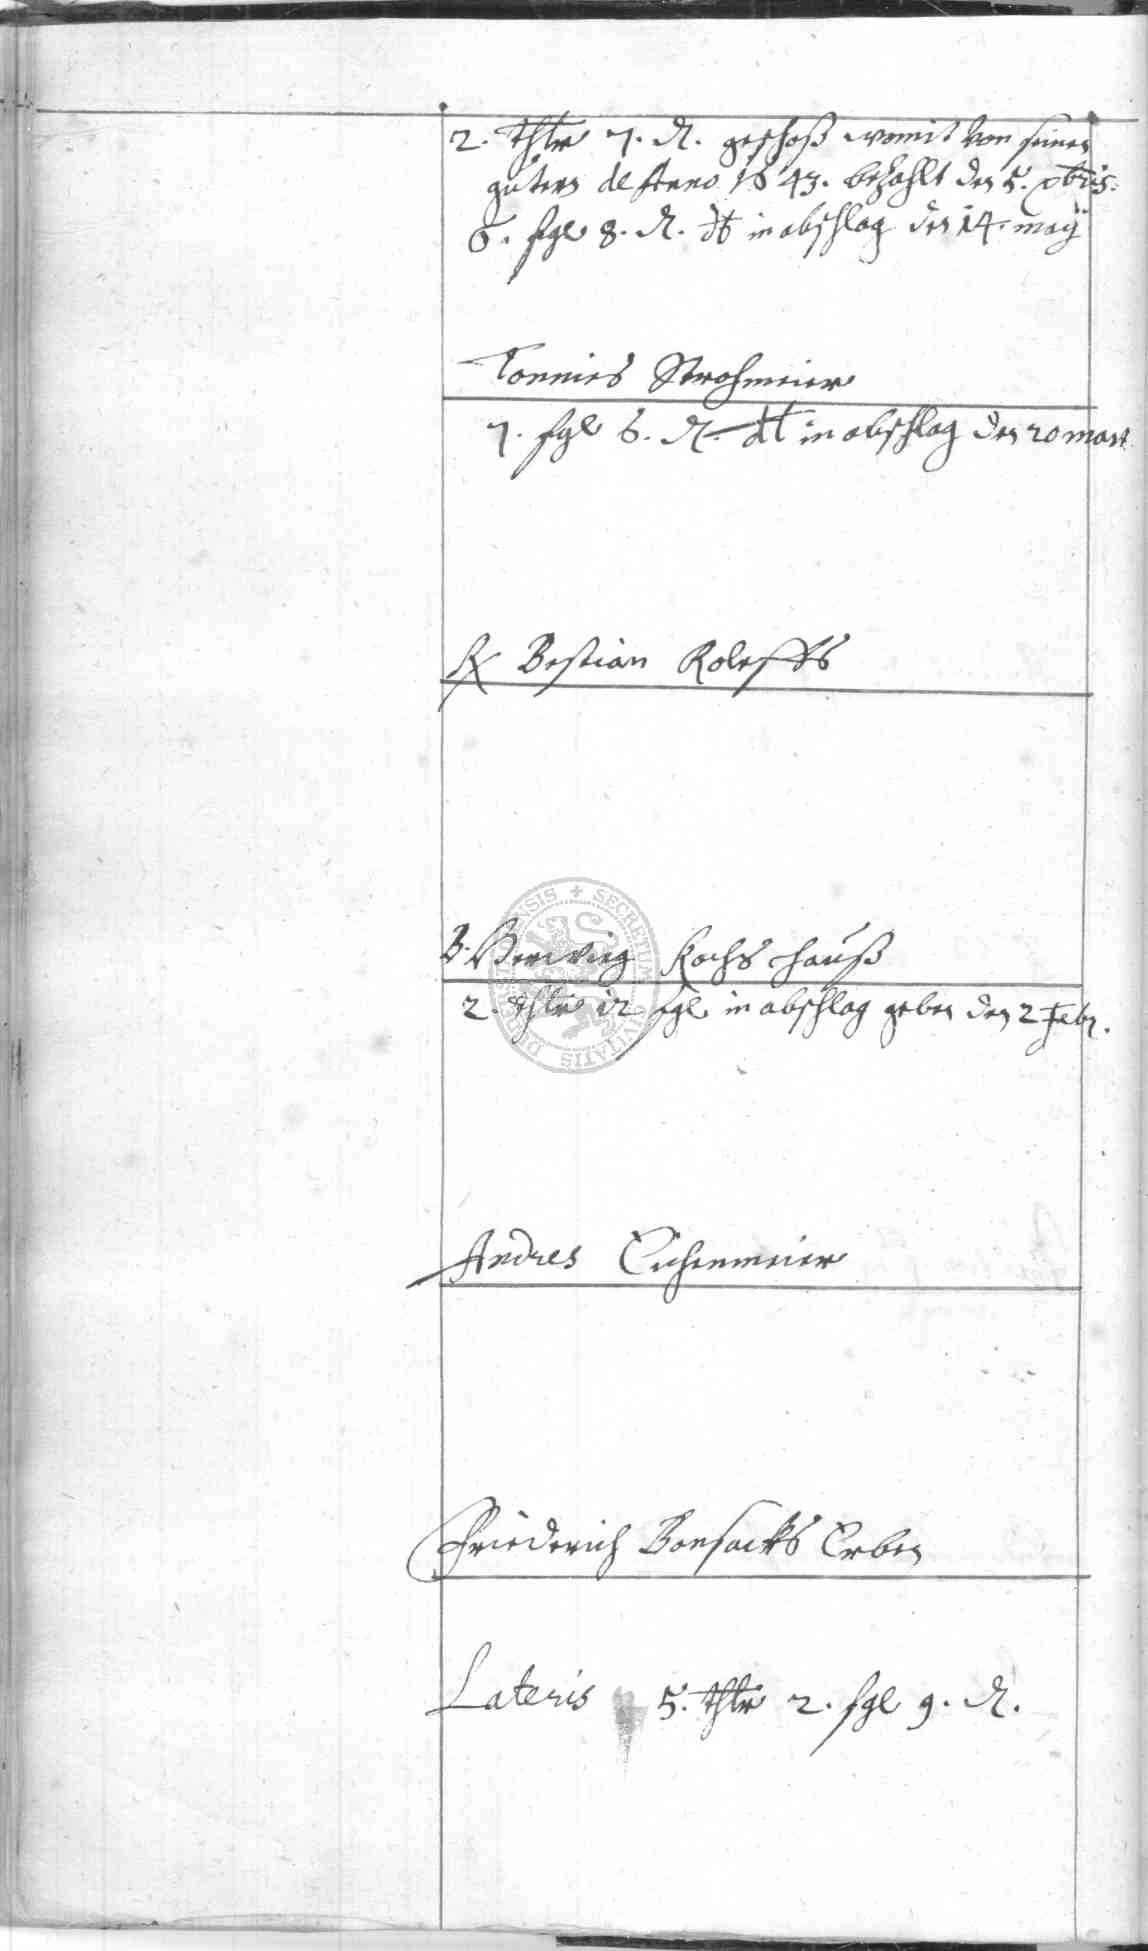 2. thlr 7. ₰. geschoß womit von seinen
gütern de Anno 1643. bezahlt den 5. xbris.
6. sgl 8. ₰. dt in abschlag den 14. maÿ
Tonnies Strohmeier
7. sgl 6. ₰. dt in abschlag den 20 mart
Bestian Roleffs
B. Herwieg Kochs hauß
2. thlr 12 sgl in abschlag geben den 2 Feb.
Andres Eichenmeier
Friederich Bonsacks Erben
Lateris 5. thlr 2. sgl 9. ₰.
SECRETUM CIVITATIS